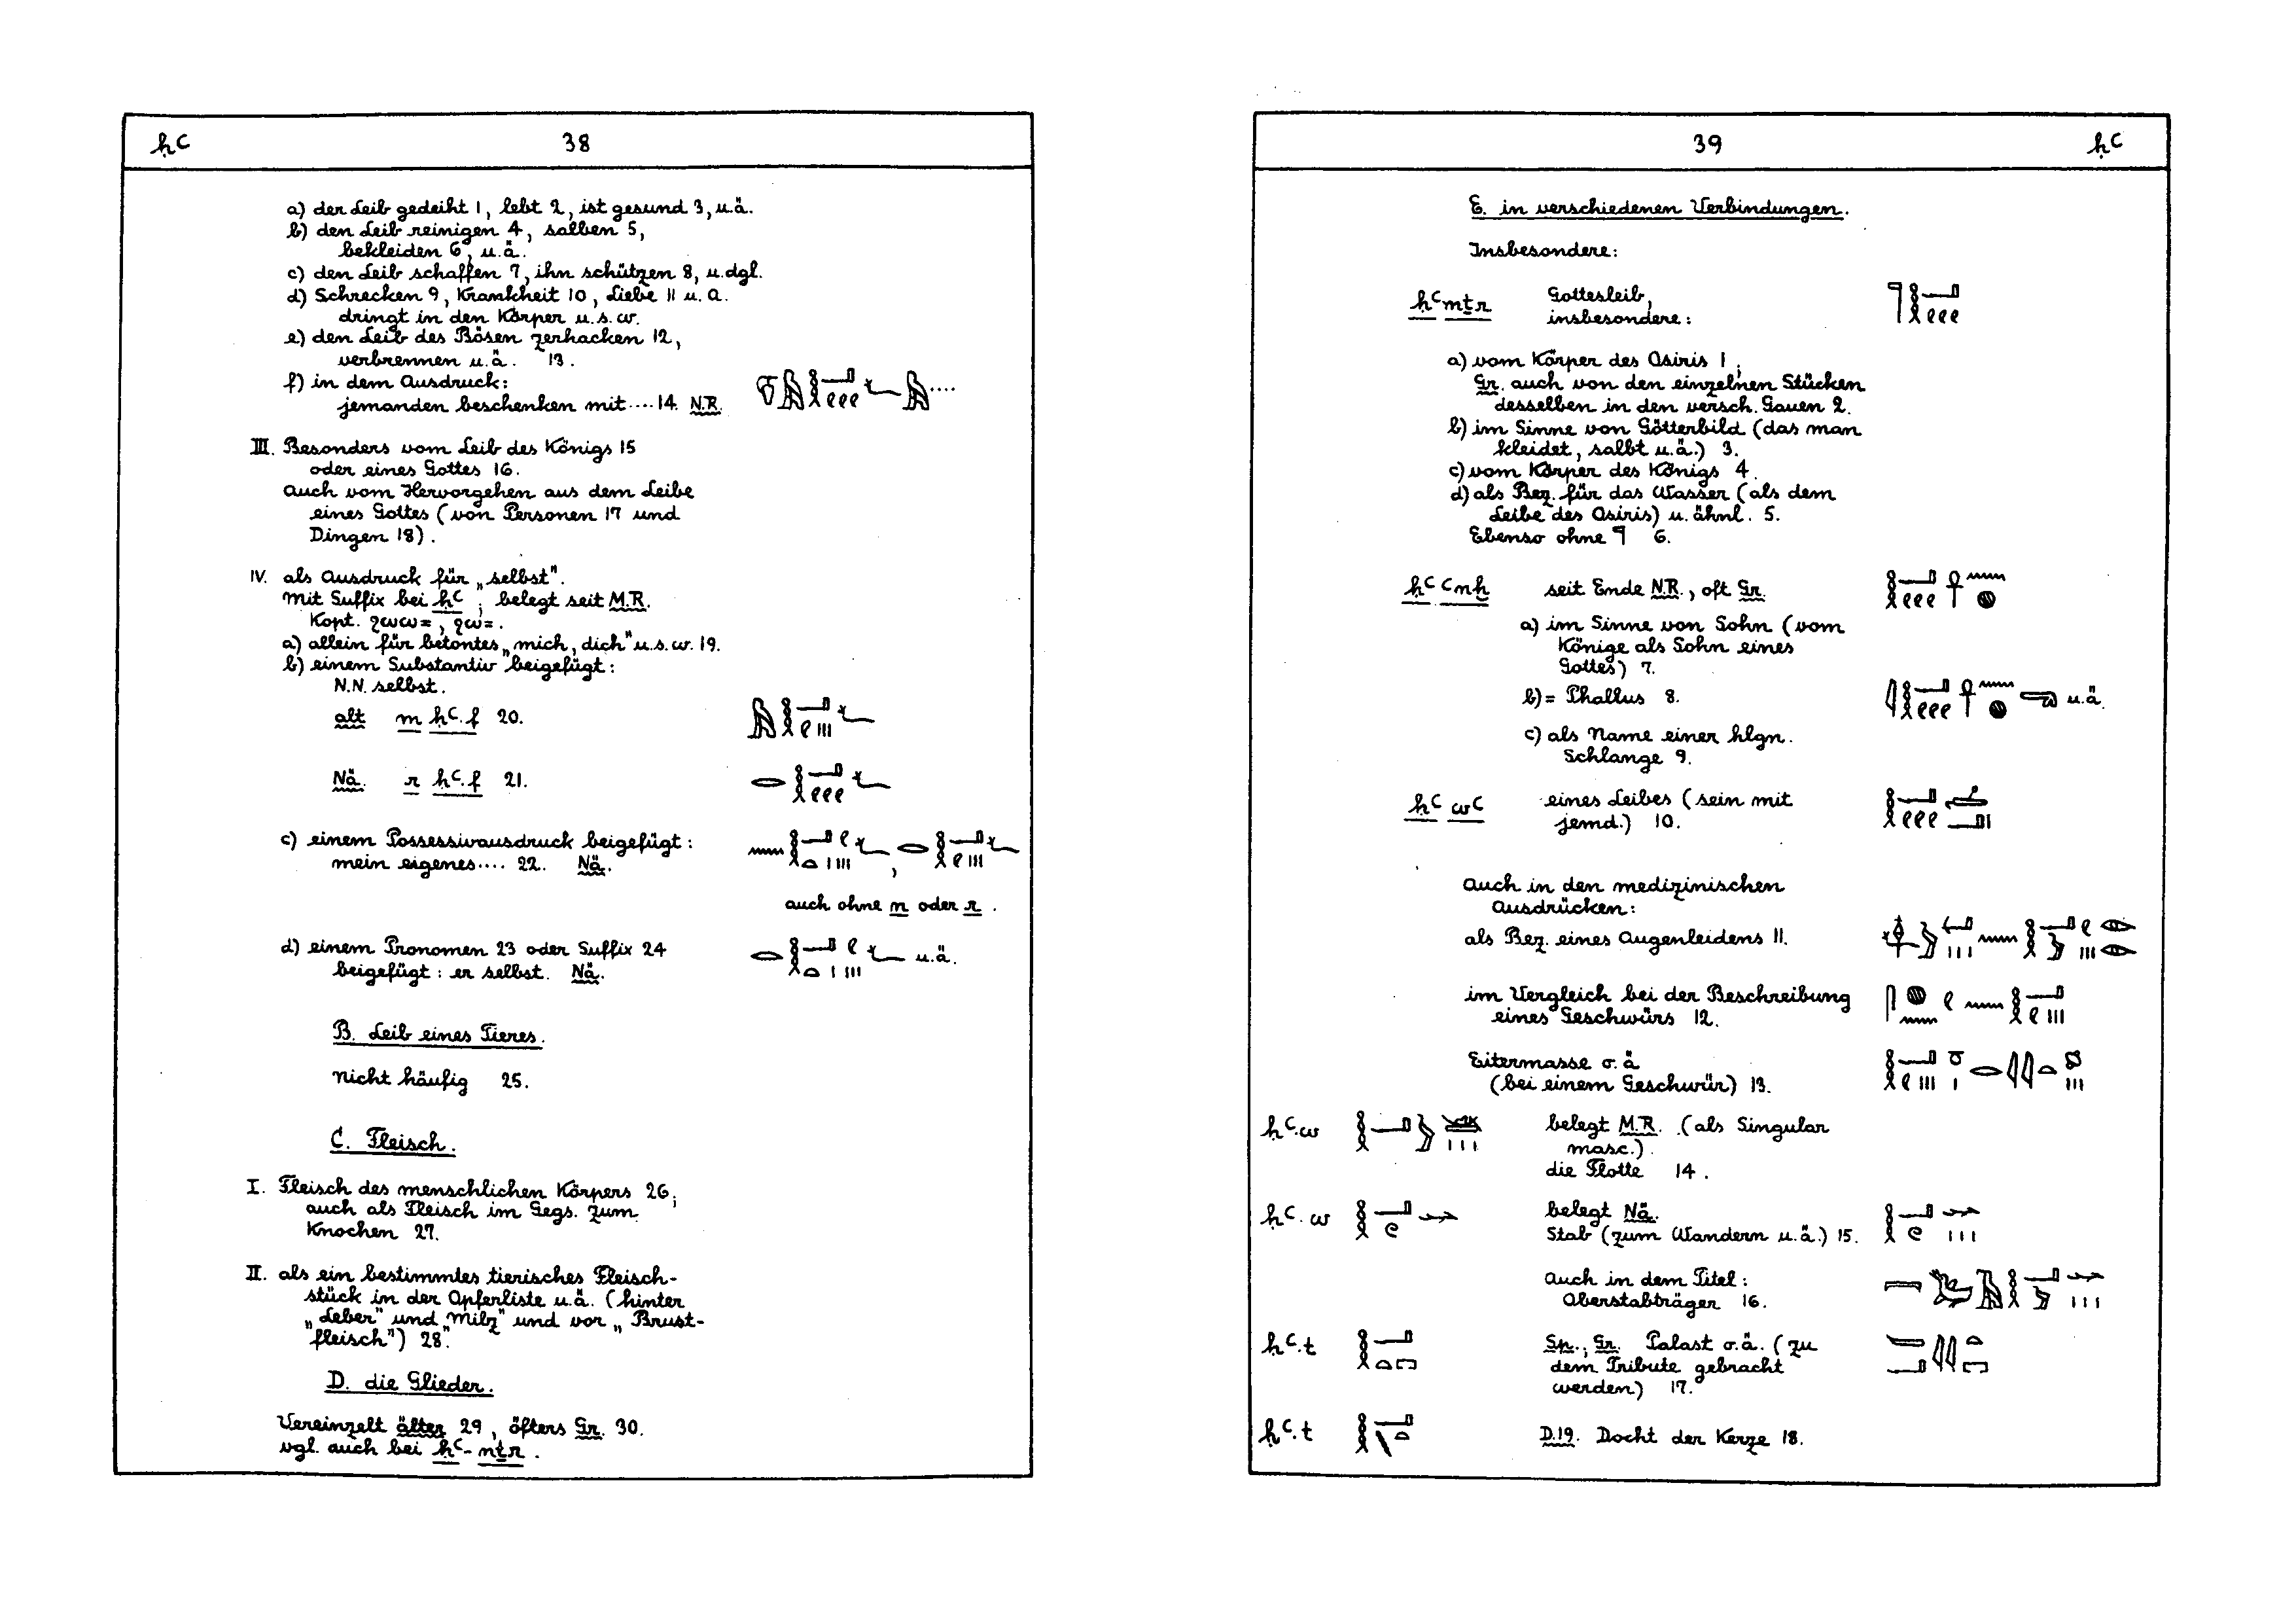 ḥꜥ 38
a) der Leib gedeiht 1, lebt 2, ist gesund 3, u.ä.
b) den Leib reinigen 4, salben 5,
bekleiden 6, u.ä.
c) den Leib schaffen 7, ihn schützen 8, u.dgl.
d) Schrecken 9, Krankheit 10, Liebe 11 u.a.
dringt in den Körper u.s.w.
e) den Leib des Bösen zerhacken 12,
verbrennen u.ä. 13.
f) in dem Ausdruck:
jemanden beschenken mit .... 14. N.R.
III. Besonders vom Leib des Königs 15
oder eines Gottes 16.
Auch vom Hervorgehen aus dem Leibe
eines Gottes (von Personen 17 und
Dingen 18).
IV. als Ausdruck für „selbst".
Mit Suffix bei ḥꜥ; belegt seit M.R.
Kopt. ϩωω=, ϩω=.
a) allein für betontes „mich, dich" u.s.w. 19.
b) einem Substantiv beigefügt:
N.N. selbst.
alt m ḥꜥ.f 20.
Nä. r ḥꜥ.f 21.
c) einem Possessivausdruck beigefügt:
mein eigenes .... 22. Nä.
auch ohne n oder r.
d) einem Pronomen 23 oder Suffix 24 u.ä.
beigefügt: er selbst. Nä.
B. Leib eines Tieres.
Nicht häufig 25.
C. Fleisch.
I. Fleisch des menschlichen Körpers 26;
auch als Fleisch im Gegs. zum
Knochen 27.
II. als ein bestimmtes tierisches Fleisch-
stück in der Opferliste u.ä. (hinter
„Leber" und „Milz" und vor „Brust-
fleisch") 28.
D. die Glieder.
Vereinzelt älter 29, öfters Gr. 30.
vgl. auch bei ḥꜥ-nṯr.
39 ḥꜥ
E. in verschiedenen Verbindungen.
Insbesondere:
ḥꜥ nṯr Gottesleib,
insbesondere:
a) vom Körper des Osiris 1;
Gr. auch von den einzelnen Stücken
desselben in den versch. Gauen 2.
b) im Sinne von Götterbild (das man
kleidet, salbt u.ä.) 3.
c) vom Körper des Königs 4.
d) als Bez. für das Wasser (als dem
Leibe des Osiris) u. ähnl. 5.
Ebenso ohne 𓊹 6.
ḥꜥ ꜥnḫ seit Ende N.R., oft Gr.
a) im Sinne von Sohn (vom
Könige als Sohn eines
Gottes) 7.
b) = Phallus 8. u.ä.
c) als Name einer hlgn.
Schlange 9.
ḥꜥ wꜥ eines Leibes (sein mit
jemd.) 10.
Auch in den medizinischen
Ausdrücken:
als Bez. eines Augenleidens 11.
im Vergleich bei der Beschreibung
eines Geschwürs 12.
Eitermasse o.ä
(bei einem Geschwür) 13.
ḥꜥ.w belegt M.R. (als Singular
masc.).
die Flotte 14.
ḥꜥ.w belegt Nä.
Stab (zum Wandern u.ä.) 15.
Auch in dem Titel:
Oberstabträger 16.
ḥꜥ.t Sp., Gr. Palast o.ä. (zu
dem Tribute gebracht
werden) 17.
ḥꜥ.t D.19. Docht der Kerze 18.